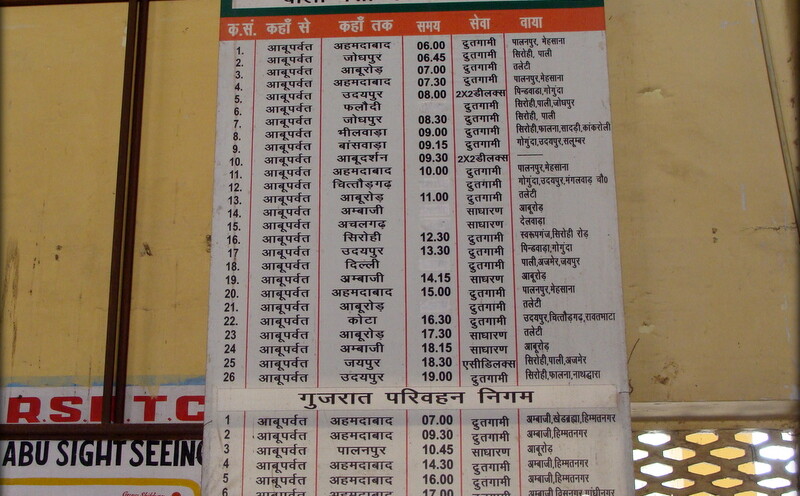 क.सं. कहाँ से कहाँ तक समय सेवा वाया
1. आबूपर्वत अहमदाबाद 06.00 दुतगामी पालनपुर, मेहसाना
2. आबूपर्वत जोधपुर 06.45 दुतगामी सिरोही, पाली
3. आबूपर्वत आबूरोड़ 07.00 दुतगामी तलेटी
4. आबूपर्वत अहमदाबाद 07.30 दुतगामी पालनपुर,मेहसाना
5. आबूपर्वत उदयपुर 08.00 2X2डीलक्स पिन्डवाडा,गोगुंदा
6. आबूपर्वत फलौदी दुतगामी सिरोही,पाली,जोधपुर
7. आबूपर्वत जोधपुर 08.30 दुतगामी सिरोही, पाली
8. आबूपर्वत भीलवाड़ा 09.00 दुतगामी सिरोही,फालना,सादड़ी,कांकरोली
9. आबूपर्वत बांसवाड़ा 09.15 दुतगामी गोगुंदा,उदयपुर,सलूम्बर
10. आबूपर्वत आबूदर्शन 09.30 2X2डीलक्स ———
11. आबूपर्वत अहमदाबाद 10.00 दुतगामी पालनपुर,मेहसाना
12. आबूपर्वत चित्तौड़गढ़ दुतगामी गोगुंदा,उदयपुर,मंगलवाड़ चौ0
13. आबूपर्वत आबूरोड़ 11.00 दुतगामी तलेटी
14. आबूपर्वत अम्बाजी साधारण आबूरोड़
15. आबूपर्वत अचलगढ़ साधारण देलवाड़ा
16. आबूपर्वत सिरोही 12.30 दुतगामी स्वरूपगंज,सिरोही रोड़
17 आबूपर्वत उदयपुर 13.30 दुतगामी पिन्डवाड़ा,गोगुंदा
18. आबूपर्वत दिल्ली दुतगामी पाली,अजमेर,जयपुर
19. आबूपर्वत अम्बाजी 14.15 साधारण आबूरोड़
20. आबूपर्वत अहमदाबाद 15.00 दुतगामी पालनपुर,मेहसाना
21. आबूपर्वत आबूरोड़ दुतगामी तलेटी
22. आबूपर्वत कोटा 16.30 दुतगामी उदयपुर,चित्तौड़गढ़,रावतभाटा
23 आबूपर्वत आबूरोड़ 17.30 साधारण तलेटी
24 आबूपर्वत अम्बाजी 18.15 साधारण आबूरोड़
25 आबूपर्वत जयपुर 18.30 एसीडिलक्स सिरोही,पाली,अजमेर
26 आबूपर्वत उदयपुर 19.00 दुतगामी सिरोही,फालना,नाथद्वारा
गुजरात परिवहन निगम
1 आबूपर्वत अहमदाबाद 07.00 दुतगामी अम्बाजी,खेडब्रह्मा,हिम्मतनगर
2 आबूपर्वत अहमदाबाद 09.30 दुतगामी अम्बाजी,हिम्मतनगर
3 आबूपर्वत पालनपुर 10.45 साधारण आबूरोड़
4 आबूपर्वत अहमदाबाद 14.30 दुतगामी अम्बाजी,हिम्मतनगर
5 आबूपर्वत अहमदाबाद 16.00 दुतगामी अम्बाजी,हिम्मतनगर
6 आबूपर्वत अहमदाबाद 17.00 दुतगामी
R.S.R.T.C
ABU SIGHT SEEING